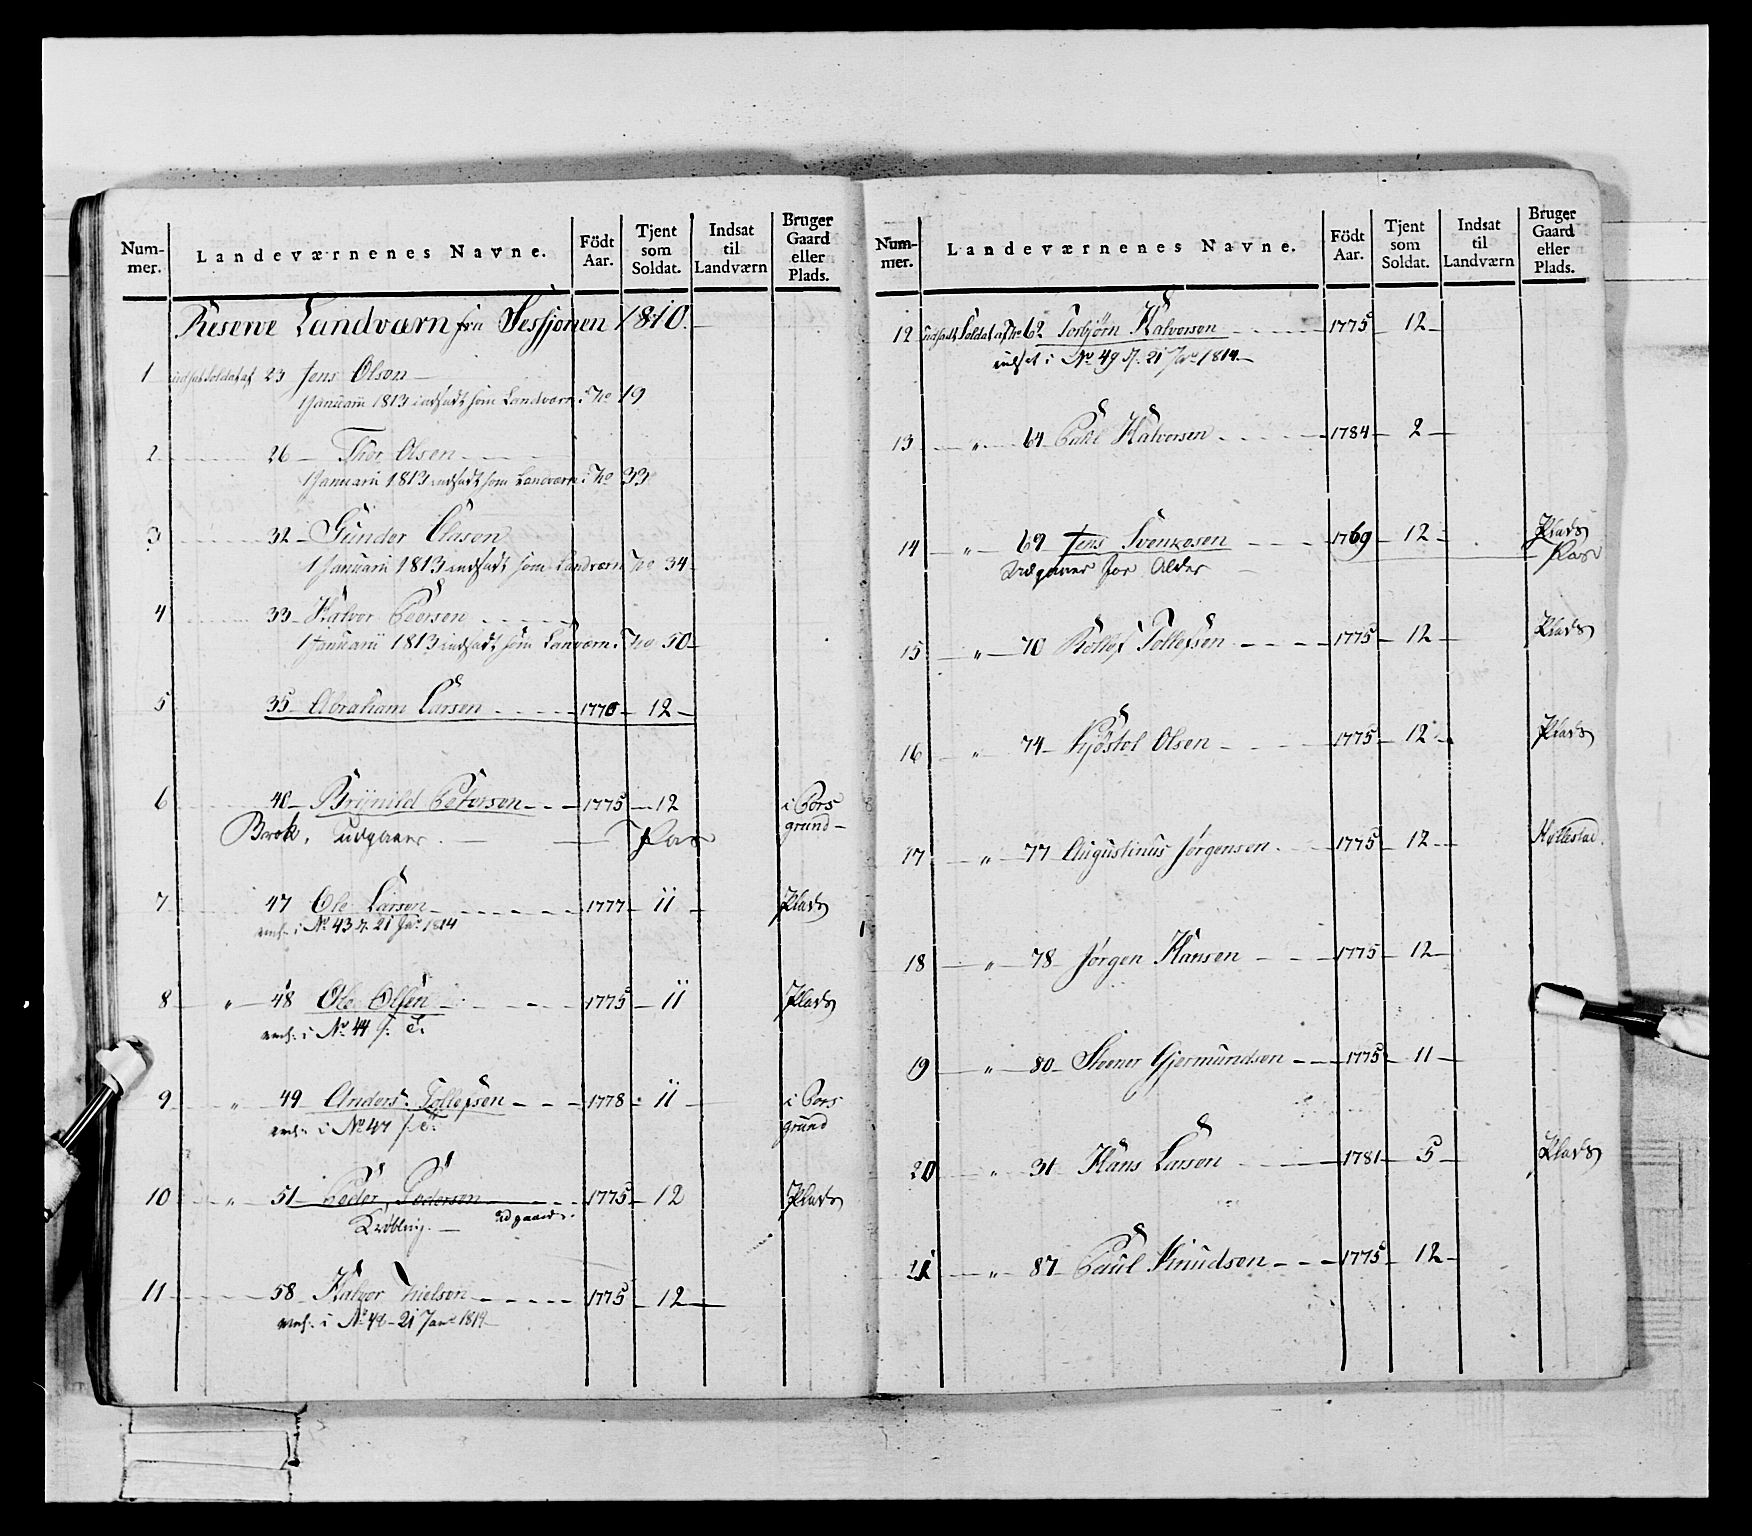 Num-
mer.
Landeværnenes Navne.
Födt
Aar.
Tjent
som
Soldat.
Indsat
til
Landværn
Bruger
Gaard
eller
Plads.
Reserve Landværn fra Sessjonen 1810
1 udsat Soldat af 23 Jens Olsen
1 Januarii 1813 indsadt som Landværn No 19
2 26 Thor Olsen
1 Januarii 1813 indsadt som Landværn No 33
3 32 Gunder Clasen
1 Januarii 1813 indsadt som Landværn No 34
4 33 Halvor Pedersen
1 Januarii 1813 indsadt som Landværn No 50
5 35 Abraham Larsen 1770 12
6 40 Brynild Petersen 1775 12 i Pors
grund
Brok, udgaaer
7 47 Ole Larsen 1777 11 Plads
i No 43 d. 21 Jan 1814
8 " 48 Ole Olsen 1775 11 Plads
i No 44 s. T.
9 " 49 Anders Tollefsen 1778 11 i Pors
grund
i No 47 s. T.
10 " 51 Peder Pedersen 1775 12 Plads
Krøbling. udgaaer
11 58 Halvor Nielsen 1775 12
i No 48 21 Jan 1814
Num-
mer.
Landeværnenes Navne.
Födt
Aar.
Tjent
som
Soldat.
Indsat
til
Landværn
Bruger
Gaard
eller
Plads.
12 udsadt Soldat af No 62 Torbjörn Halvorsen 1775 12
indsat i No 49 d. 21 Jan 1814
13 " 64 Halvorsen 1784 2
14 " 69 Jens Svenkesen 1769 12 Plads
Udgaaer for Alder
15 " 70 Rollef Tollefsen 1775 12 Plads
16 " 74 Kjöstol Olsen 1775 12 Plads
17 " 77 Augustinus Jörgensen 1775 12
18 " 78 Jörgen Hansen 1775 12
19 " 80 Steener Gjermundsen 1775 11
20 " 31 Hans Larsen 1781 5 Plads
21 " 87 Paul Knudsen 1775 12